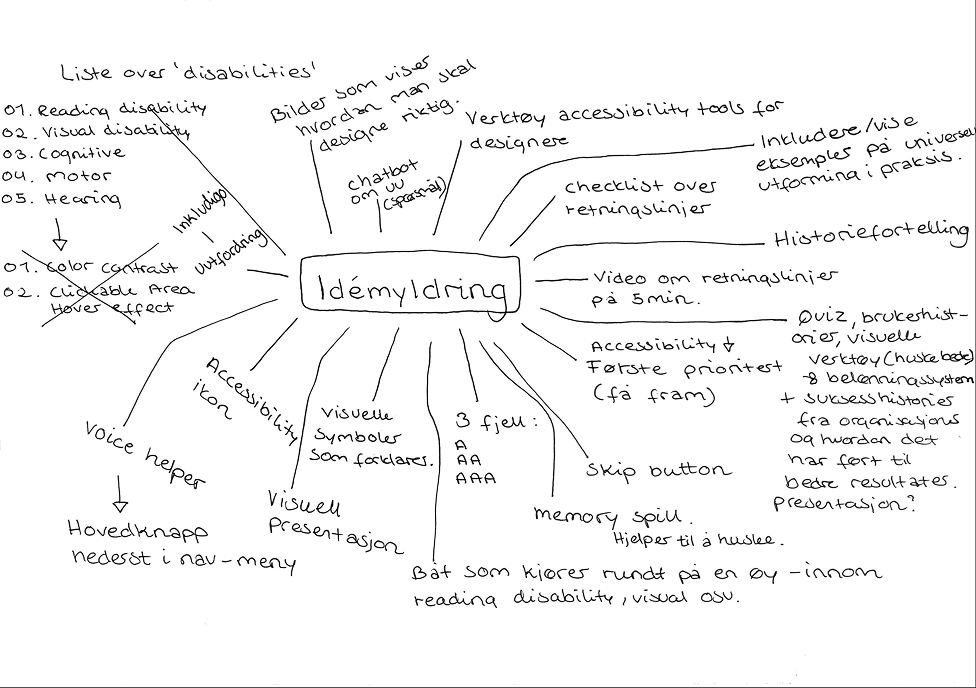 Liste over 'disabilities'
01. Reading disability
02. Visual disability
03. Cognitive
04. Motor
05. Hearing
01. Color contrast
02. Clickable Area
Hover effect
Inkludign
utfordring
Bilder som viser
hvordan man skal
designe riktig.
Chatbot
om UU
(spørsmål)
Verktøy accessibility tools for
designere
Inkludere/vise
eksempler på universell
utforming i praksis.
Checklist over
retningslinjer
Historiefortelling
Idémyldring
Video om retningslinjer
på 5min.
Quiz, brukerhist-
orier, visuelle
verktøy (huske bedre)
→ belønningssystem
+ suksesshistorier
fra organisasjons
og hvordan det
har ført til
bedre resultater.
presentasjon?
Accessibility ↓
Første prioritert
(få fram)
Accessibility
ikon
Voice helper
Hovedknapp
nederst i nav-meny
Visuell
presentasjon
visuelle
symboler
som forklares.
3 fjell:
A
AA
AAA
Skip button
memory spill.
Hjelper til å huske.
Båt som kjører rundt på en øy -innom
reading disability, visual osv.